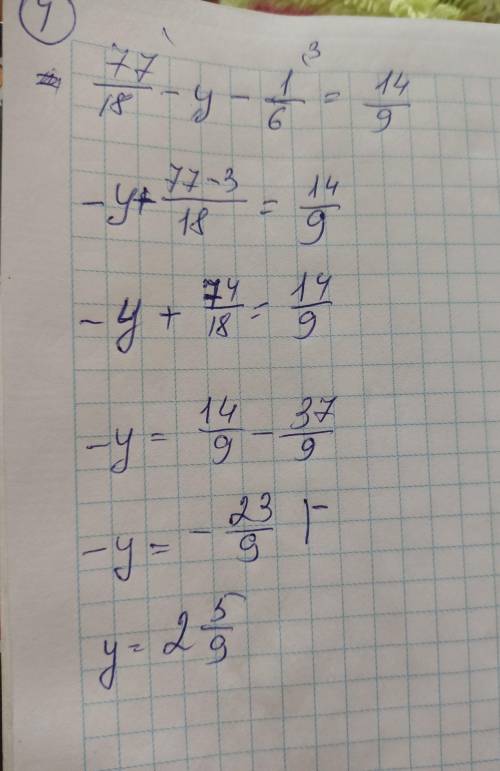 4
77/18 - y - 1/6 = 14/9
3
-y + (77-3)/18 = 14/9
-y + 74/18 = 14/9
-y = 14/9 - 37/9
-y = - 23/9 | -
y = 2 5/9